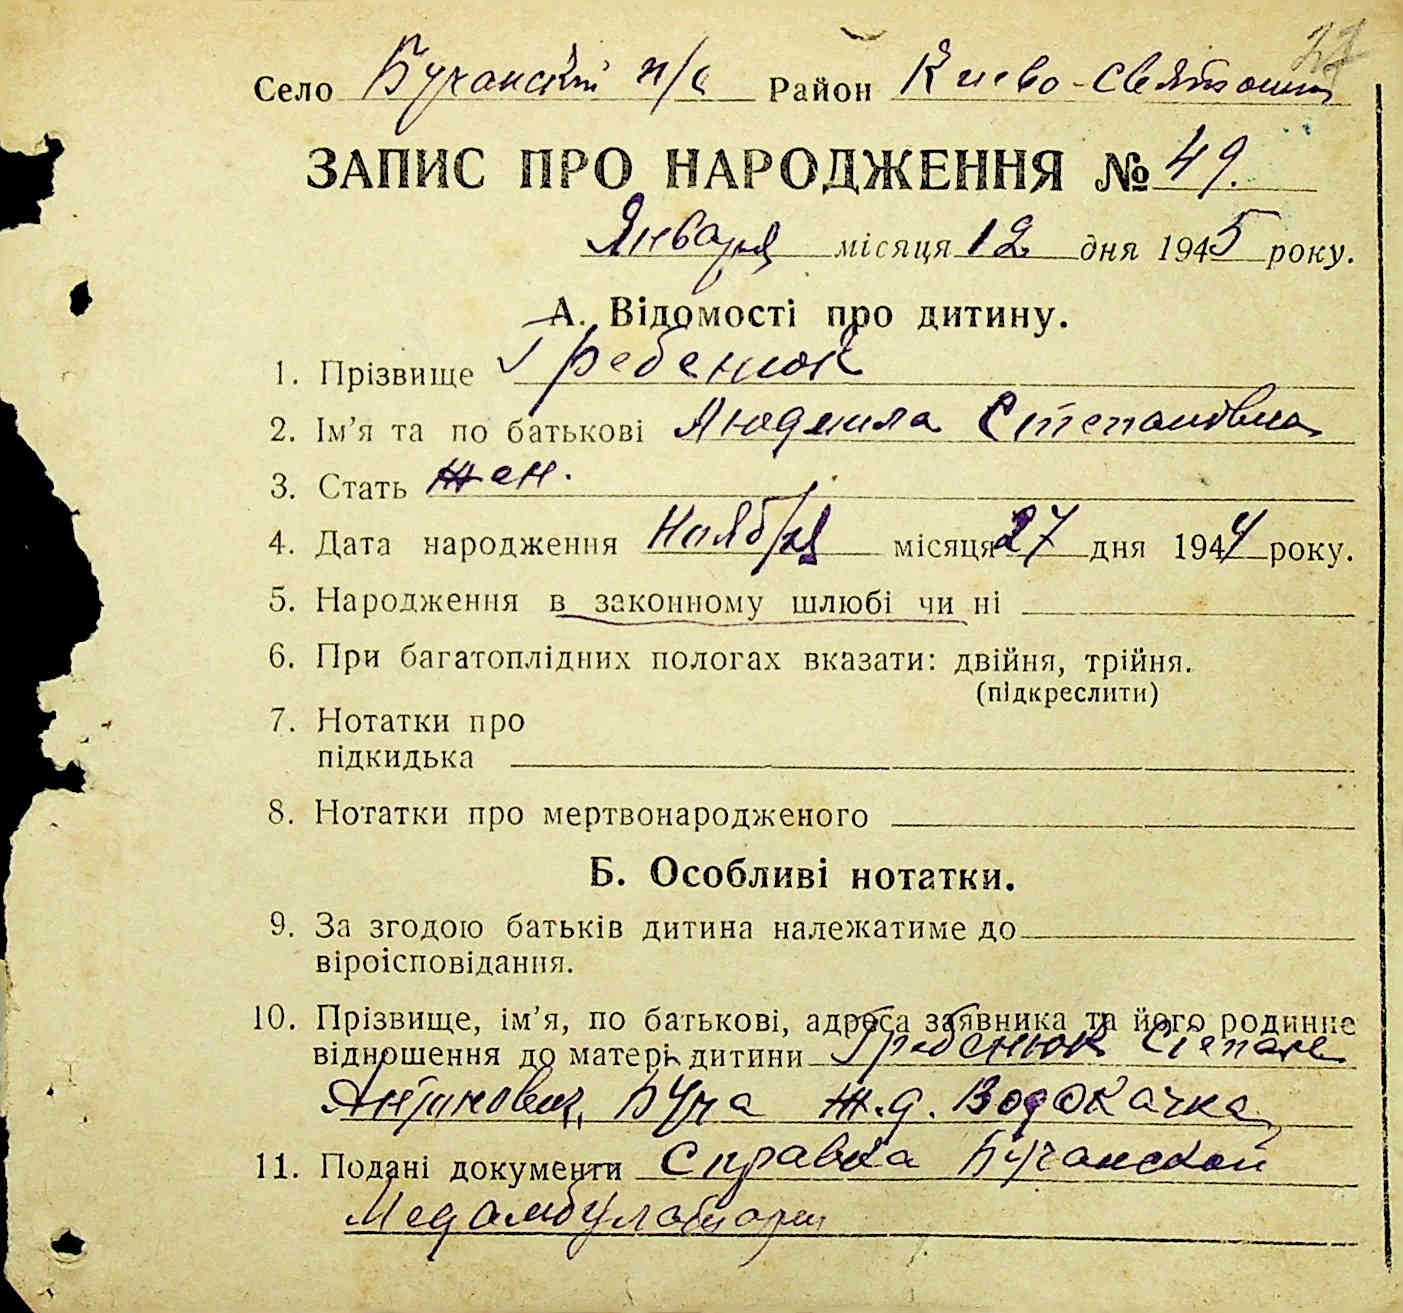 Село Бучанский п/с Район Киево-Святошин
ЗАПИС ПРО НАРОДЖЕННЯ № 49.
Января місяця 12 дня 1945 року.
А. Відомості про дитину.
1. Прізвище Гребенюк
2. Ім'я та по батькові Людмила Степановна
3. Стать жен.
4. Дата народження Ноября місяця 27 дня 1944 року.
5. Народження в законному шлюбі чи ні
6. При багатоплідних пологах вказати: двійня, трійня.
(підкреслити)
7. Нотатки про
підкидька
8. Нотатки про мертвонародженого
Б. Особливі нотатки.
9. За згодою батьків дитина належатиме до
віроісповідання.
10. Прізвище, ім'я, по батькові, адреса заявника та його родинне
відношення до матері дитини Гребенюк Степан
Антонович, Буча ж.д. Водокачка
11. Подані документи Справка Бучанской
Медамбулатории